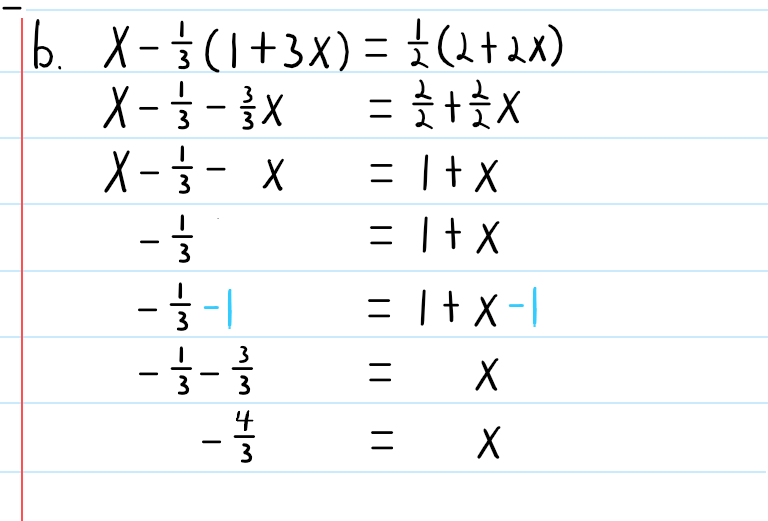 b. x - 1/3 (1 + 3x) = 1/2 (2 + 2x)
x - 1/3 - 3/3 x = 2/2 + 2/2 x
x - 1/3 - x = 1 + x
- 1/3 = 1 + x
- 1/3 - 1 = 1 + x - 1
- 1/3 - 3/3 = x
- 4/3 = x